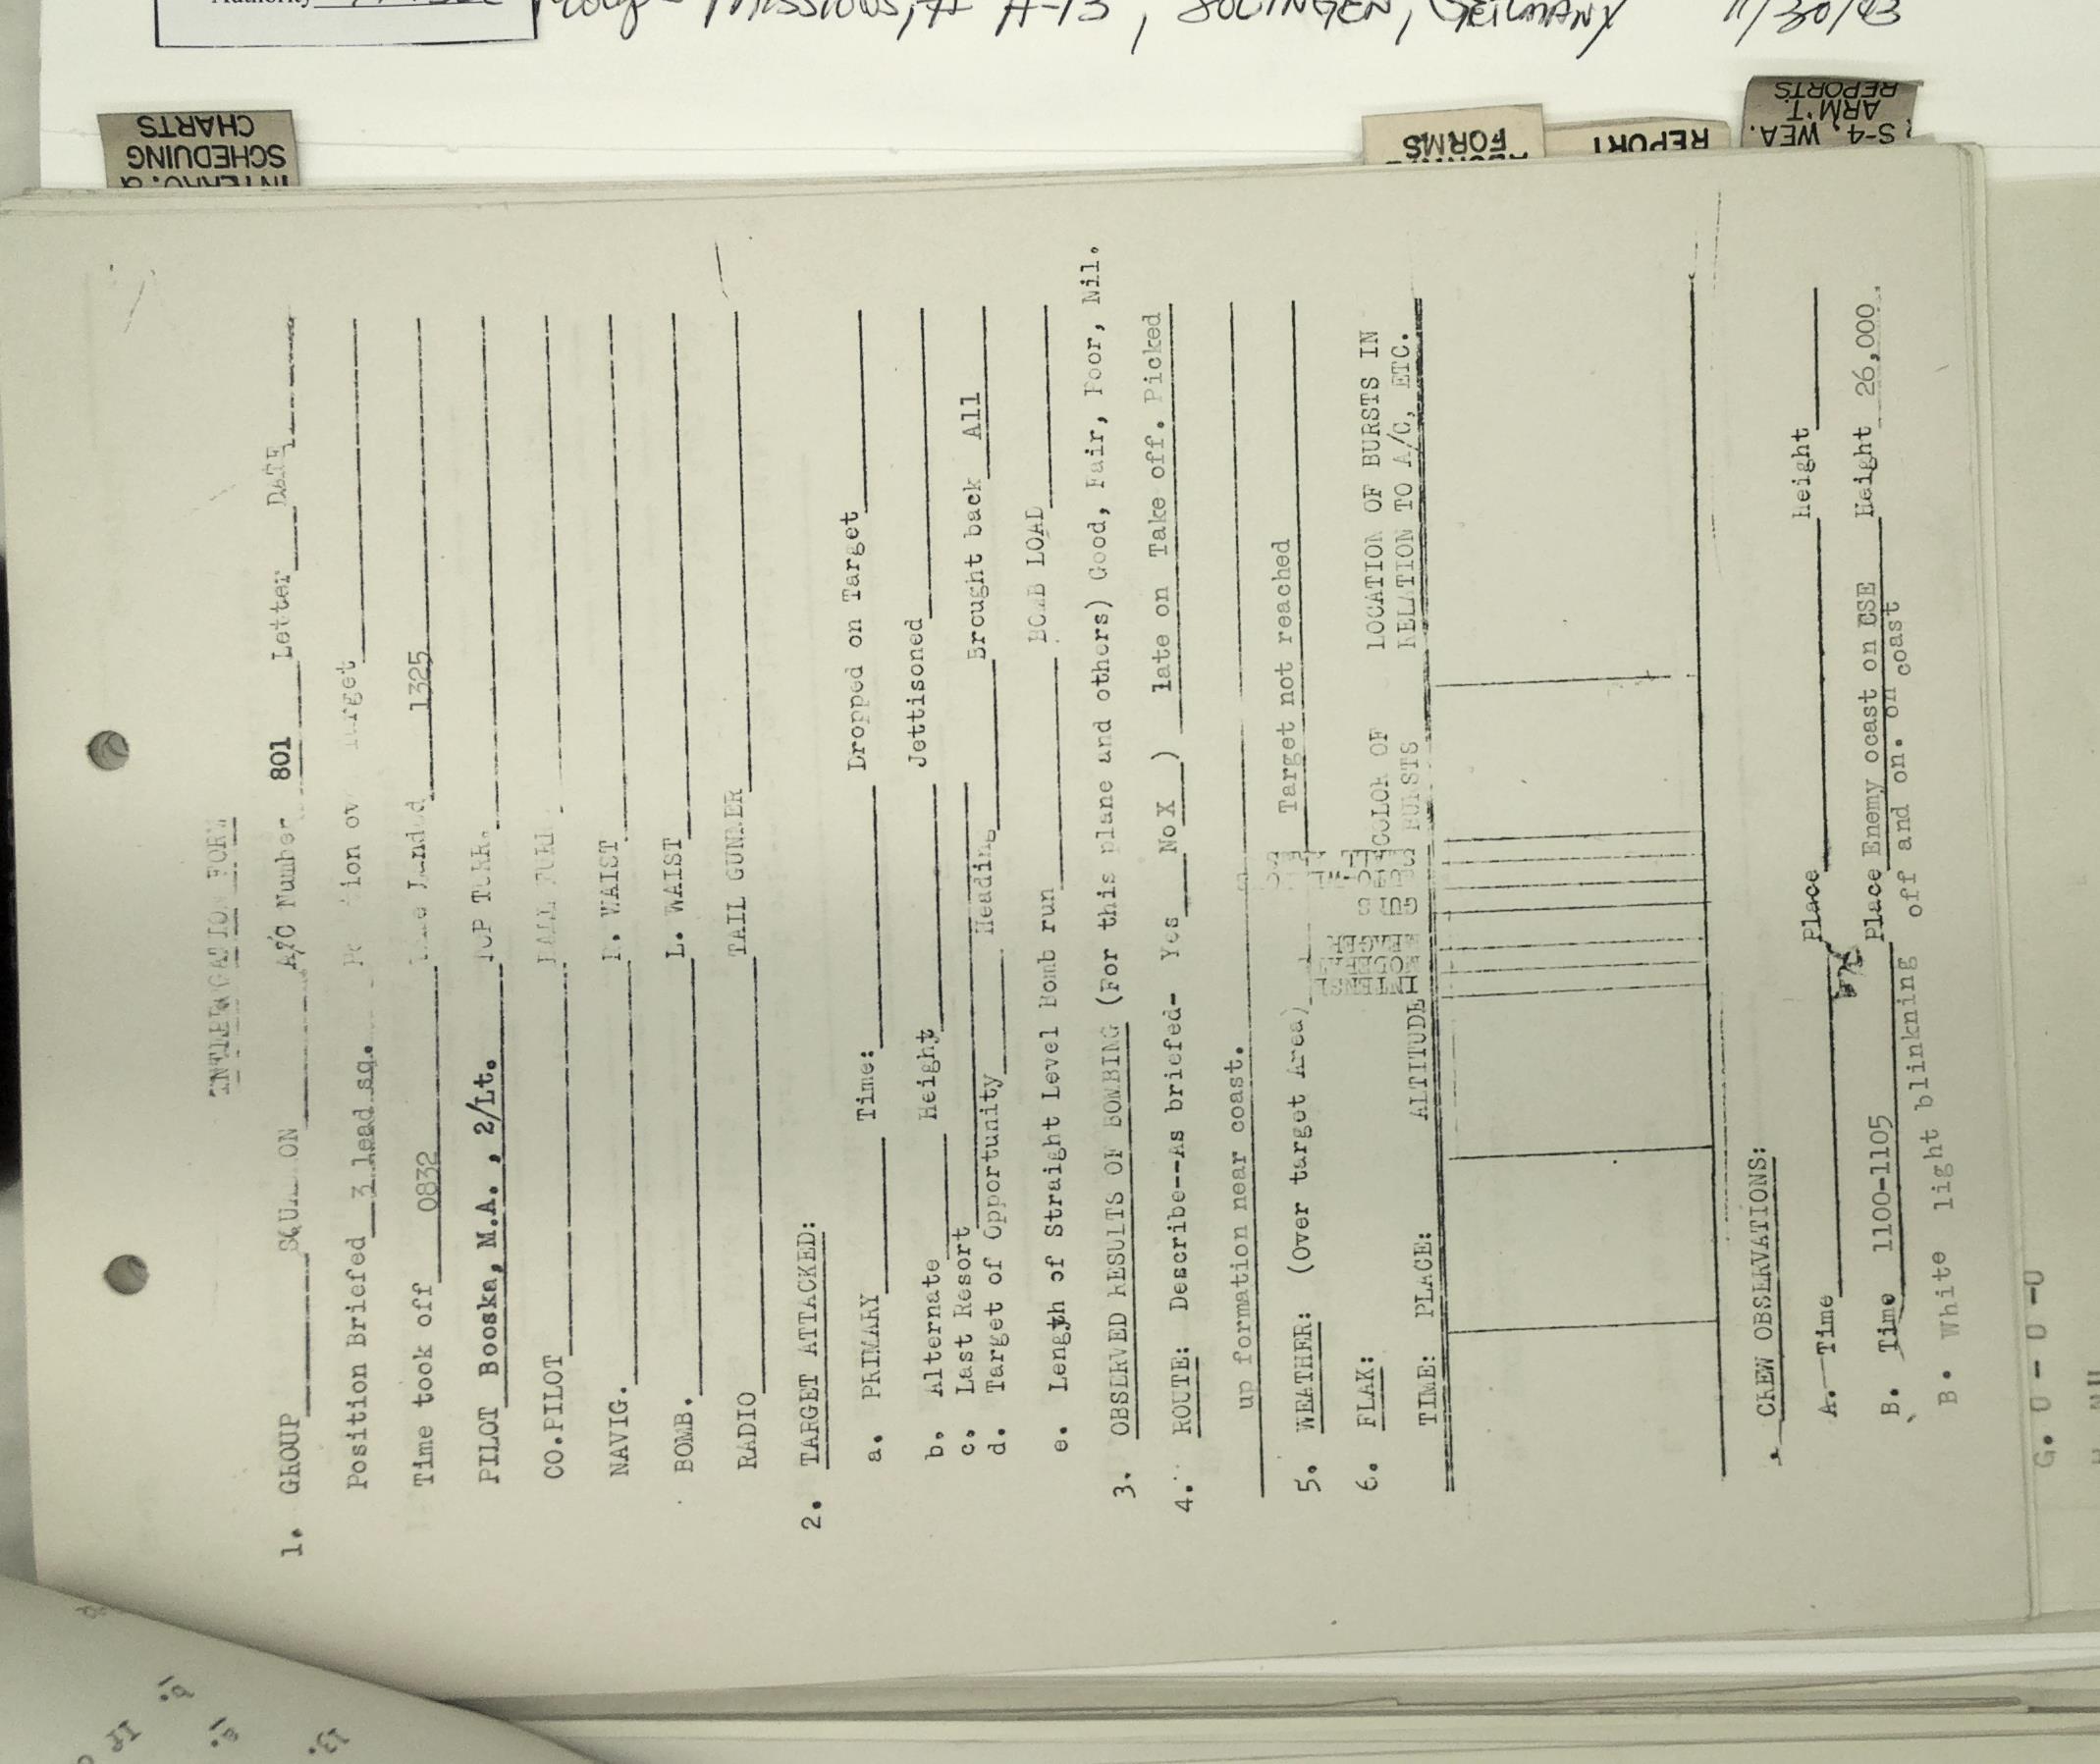 Missions, # A-13, SOLINGEN, GERMANY 11/30/43
SCHEDUING
CHARTS
FORMS
REPORT
S-4, WEA.
ARM'T.
REPORTS
INTERROGATION FORM
1. GROUP____ SQUADRON____ A/C Number 801 Letter____ DATE____
Position Briefed 3 lead sq. Position over target____
Time took off 0832 Time Landed 1325
PILOT Booska, M.A. , 2/Lt. TOP TURR.____
CO.PILOT____ BALL TURR____
NAVIG.____ R. WAIST____
BOMB.____ L. WAIST____
RADIO____ TAIL GUNNER____
2. TARGET ATTACKED:
a. PRIMARY____ Time:____ Dropped on Target____
b. Alternate____ Height____ Jettisoned____
c. Last Resort____
d. Target of Opportunity____ Heading____ Brought back All
e. Length of Straight Level Bomb run____ BOMB LOAD____
3. OBSERVED RESULTS OF BOMBING (For this plane and others) Good, Fair, Poor, Nil.
4. ROUTE: Describe--As briefed- Yes____ No X ) late on Take off. Picked
up formation near coast.
5. WEATHER: (Over target Area) Target not reached
6. FLAK: COLOR OF LOCATION OF BURSTS IN
TIME: PLACE: ALTITUDE BURSTS RELATION TO A/C, ETC.
CREW OBSERVATIONS:
A. Time____ Place____ height____
B. Time 1100-1105 Place Enemy ocast on CSE Height 26,000
B. White light blinkning off and on. on coast
G. O - O -O
13.